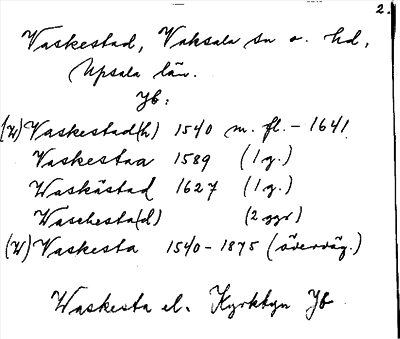 2.
Vaskestad, Vaksala sn o. hd,
Upsala län.
Jb:
(W)Vaskestad(h) 1540 m. fl. - 1641
Vaskestaa 1589 (1 g.)
Waskästad 1627 (1 g.)
Waschesta(d) (2 ggr)
(W)Vaskesta 1540-1875 (överväg.)
Waskesta el. Kyrkbyn Jb